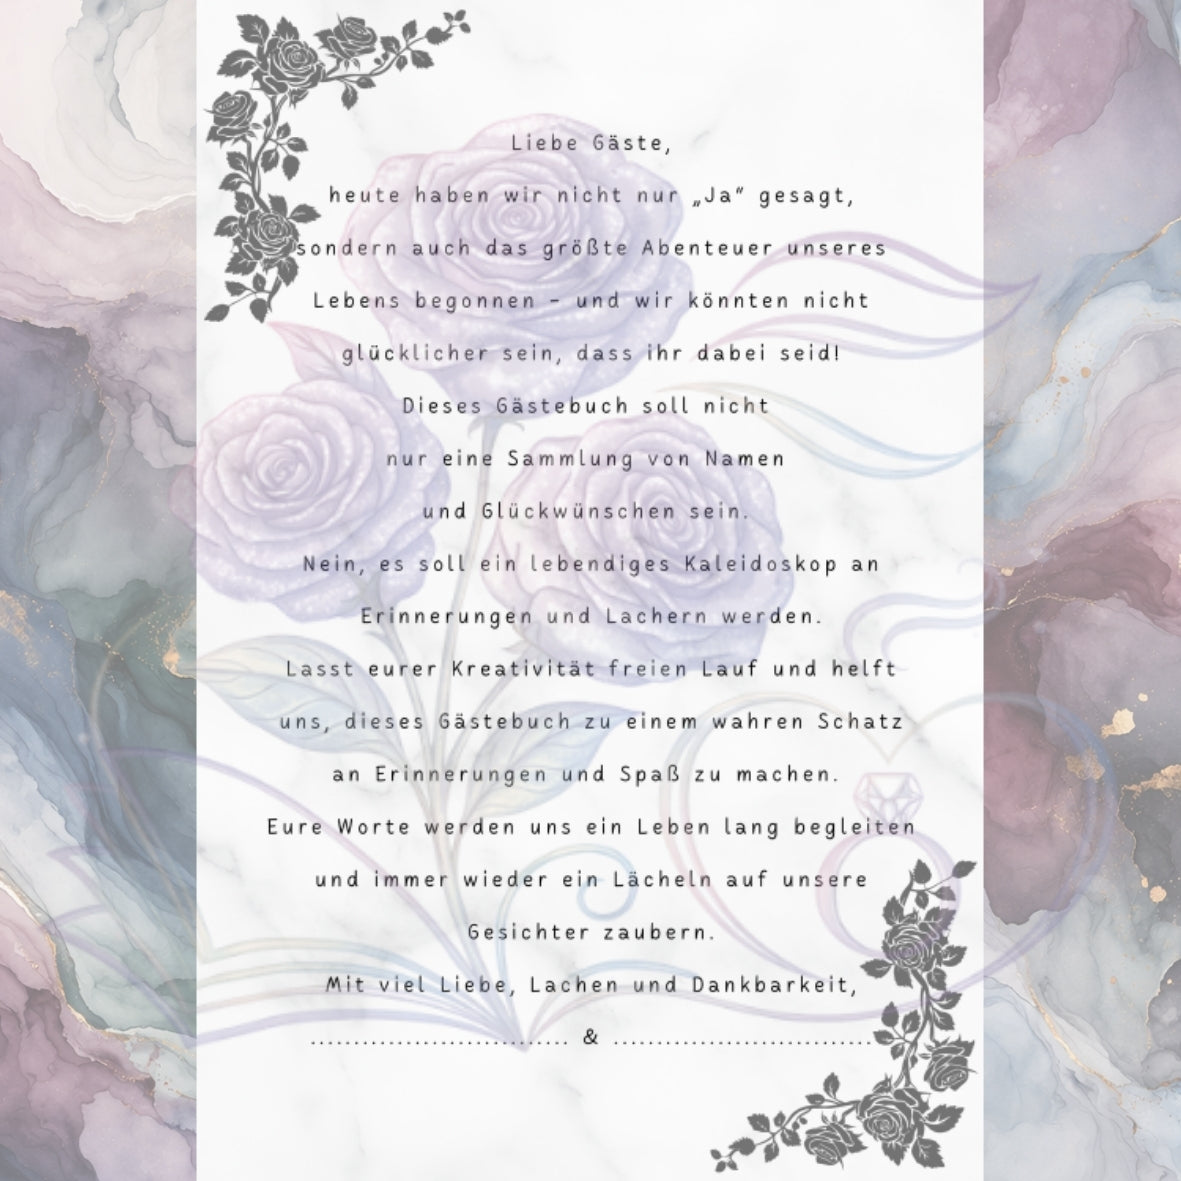 Liebe Gäste,
heute haben wir nicht nur „Ja“ gesagt,
sondern auch das größte Abenteuer unseres
Lebens begonnen – und wir könnten nicht
glücklicher sein, dass ihr dabei seid!
Dieses Gästebuch soll nicht
nur eine Sammlung von Namen
und Glückwünschen sein.
Nein, es soll ein lebendiges Kaleidoskop an
Erinnerungen und Lachern werden.
Lasst eurer Kreativität freien Lauf und helft
uns, dieses Gästebuch zu einem wahren Schatz
an Erinnerungen und Spaß zu machen.
Eure Worte werden uns ein Leben lang begleiten
und immer wieder ein Lächeln auf unsere
Gesichter zaubern.
Mit viel Liebe, Lachen und Dankbarkeit,
.............................. & ..............................